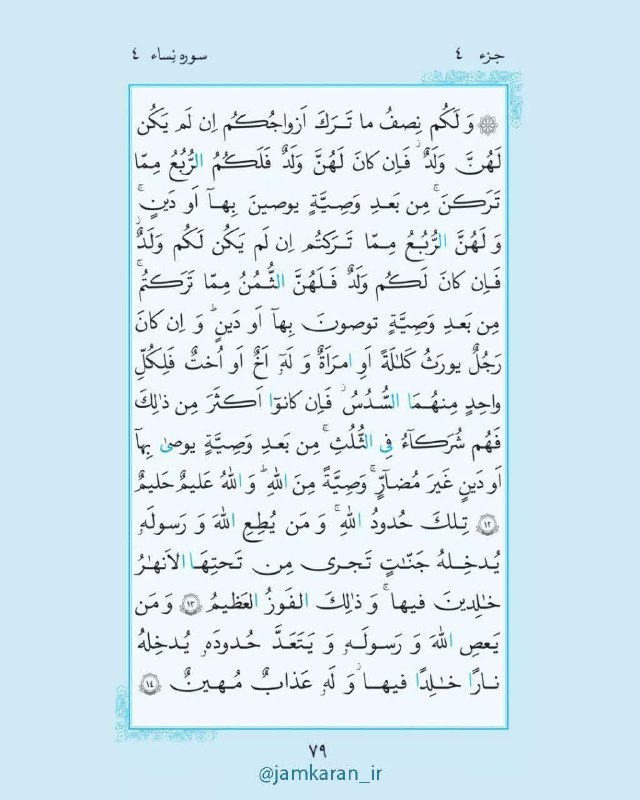 سوره نِساء ٤
جزء ٤
وَ لَكُم نِصفُ ما تَرَكَ اَزواجُكُم اِن لَم يَكُن
لَهُنَّ وَلَدٌ ۚ فَاِن كانَ لَهُنَّ وَلَدٌ فَلَكُمُ الرُّبُعُ مِمّا
تَرَكنَ ۚ مِن بَعدِ وَصِيَّةٍ يوصينَ بِها اَو دَينٍ ۚ
وَ لَهُنَّ الرُّبُعُ مِمّا تَرَكتُم اِن لَم يَكُن لَكُم وَلَدٌ ۚ
فَاِن كانَ لَكُم وَلَدٌ فَلَهُنَّ الثُّمُنُ مِمّا تَرَكتُم ۚ
مِن بَعدِ وَصِيَّةٍ توصونَ بِها اَو دَينٍ ۗ وَ اِن كانَ
رَجُلٌ يورَثُ كَلٰلَةً اَوِ امرَاَةٌ وَ لَهٗ اَخٌ اَو اُختٌ فَلِكُلِّ
واحِدٍ مِنهُمَا السُّدُسُ ۚ فَاِن كانوا اَكثَرَ مِن ذٰلِكَ
فَهُم شُرَكاءُ فِى الثُّلُثِ ۚ مِن بَعدِ وَصِيَّةٍ يوصىٰ بِها
اَو دَينٍ غَيرَ مُضارٍّ ۚ وَصِيَّةً مِنَ اللهِ ۗ وَ اللهُ عَليمٌ حَليمٌ
﴿١٢﴾ تِلكَ حُدودُ اللهِ ۚ وَ مَن يُطِعِ اللهَ وَ رَسولَهٗ
يُدخِلهُ جَنّاتٍ تَجرى مِن تَحتِهَا الاَنهٰرُ
خٰلِدينَ فيها ۚ وَ ذٰلِكَ الفَوزُ العَظيمُ ﴿١٣﴾ وَ مَن
يَعصِ اللهَ وَ رَسولَهٗ وَ يَتَعَدَّ حُدودَهٗ يُدخِلهُ
نارًا خٰلِدًا فيها وَ لَهٗ عَذابٌ مُهينٌ ﴿١٤﴾
٧٩
@jamkaran_ir